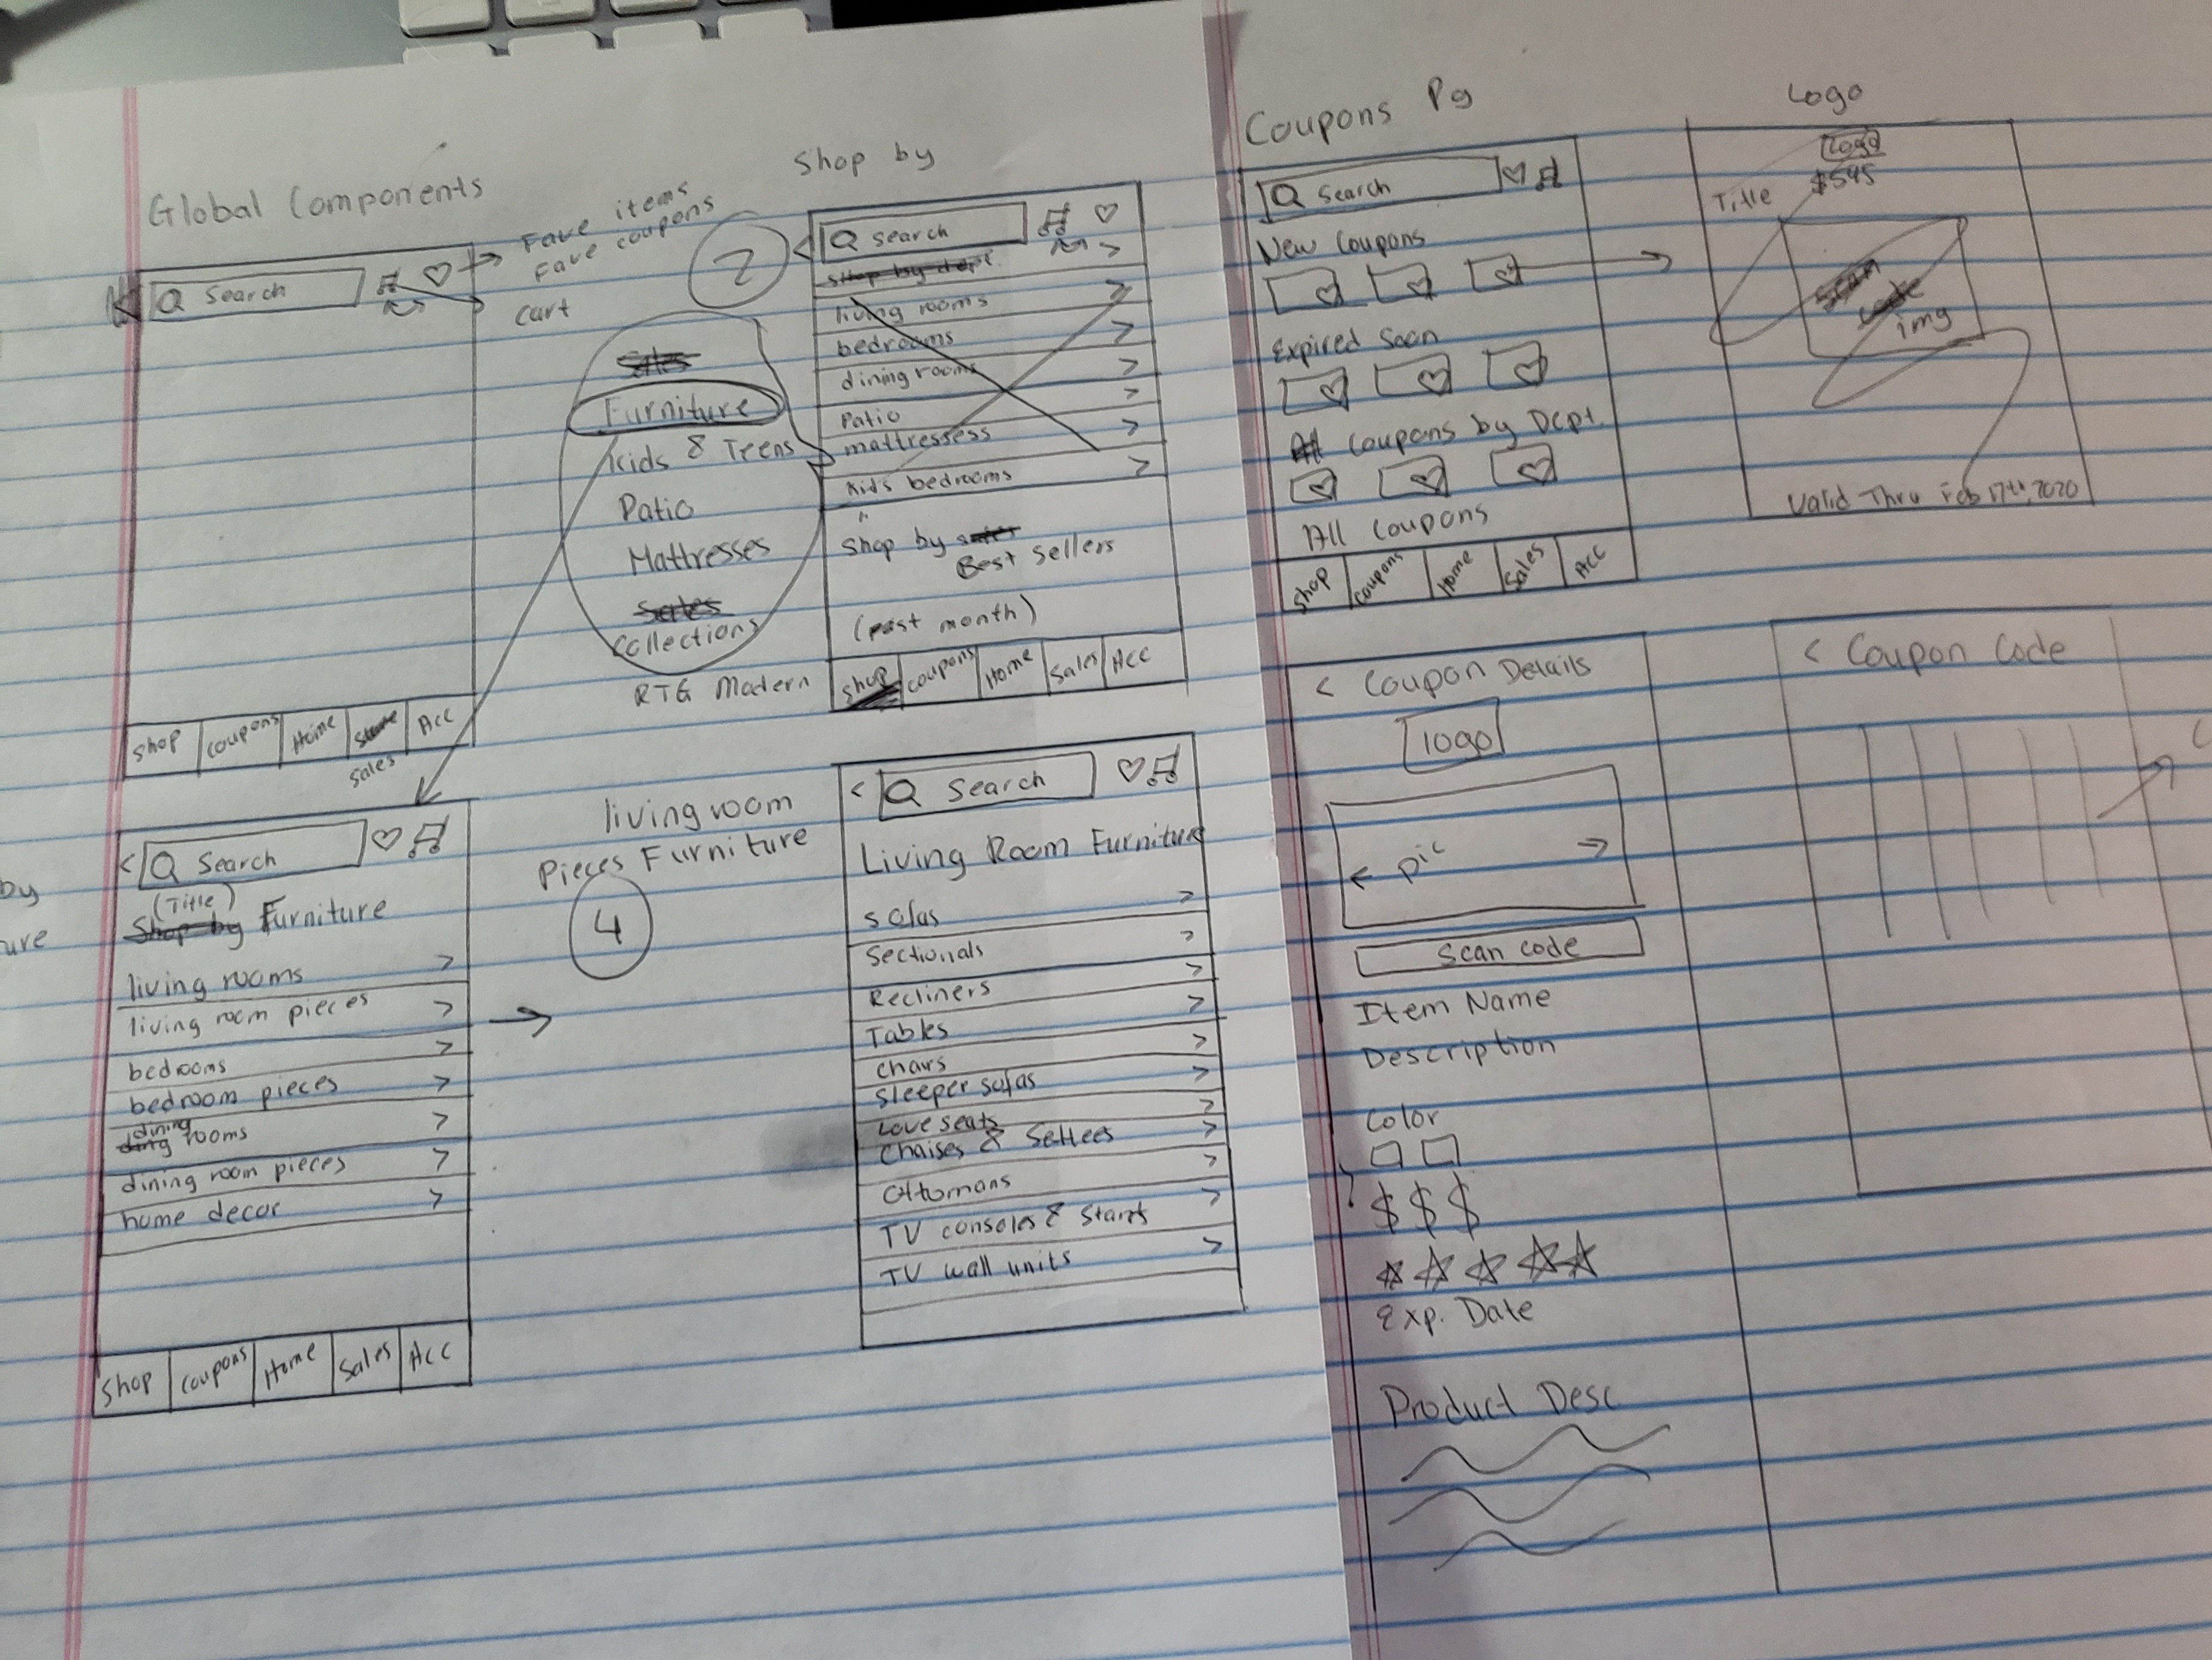 Global Components
Search
Fave items
Fave coupons
Cart
Shop
Coupons
Home
Store
Sales
Acc
2
Sales
Furniture
Kids & Teens
Patio
Mattresses
Sales
Collections
RTG Modern
Shop by
Search
Shop by dept.
living rooms
bedrooms
dining rooms
Patio
mattressess
Kids bedrooms
Shop by sales
Best Sellers
(past month)
Shop
Coupons
Home
Sales
Acc
by
ure
Search
(Title)
Shop by Furniture
living rooms
living room pieces
bedrooms
bedroom pieces
dining
rooms
dining room pieces
home decor
Shop
Coupons
Home
Sales
Acc
living room
Pieces Furniture
4
Search
Living Room Furniture
Sofas
Sectionals
Recliners
Tables
Chairs
Sleeper sofas
Love seats
Chaises & Settees
Ottomans
TV consoles &
TV wall units
Coupons Pg
Search
New Coupons
Expired Soon
All Coupons by Dept.
All Coupons
Shop
Coupons
Home
Sales
Acc
Logo
Logo
$595
Title
Scan
code
img
Valid Thru Feb 17th, 2020
< Coupon Details
logo
pic
Scan code
Item Name
Description
Color
$ $ $
Exp. Date
Product Desc
< Coupon Code